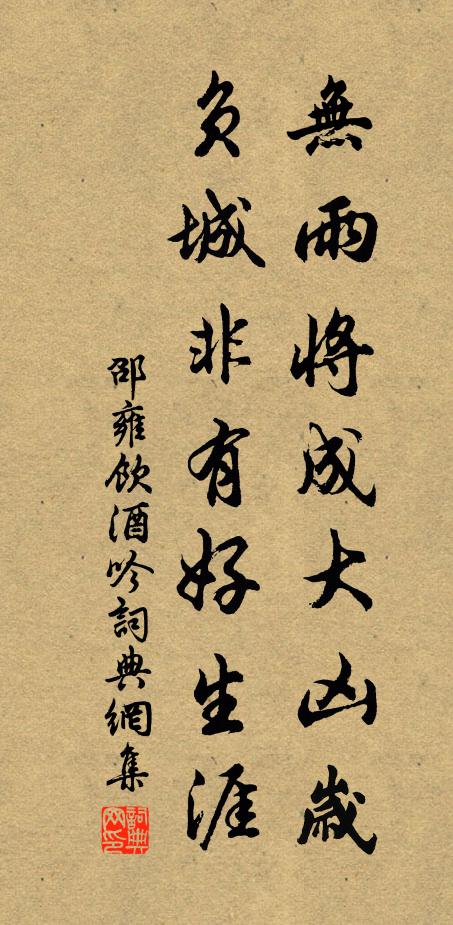 無雨將成大凶歲
負城非有好生涯
邵雍飲酒吟詞典網集
詞典網印